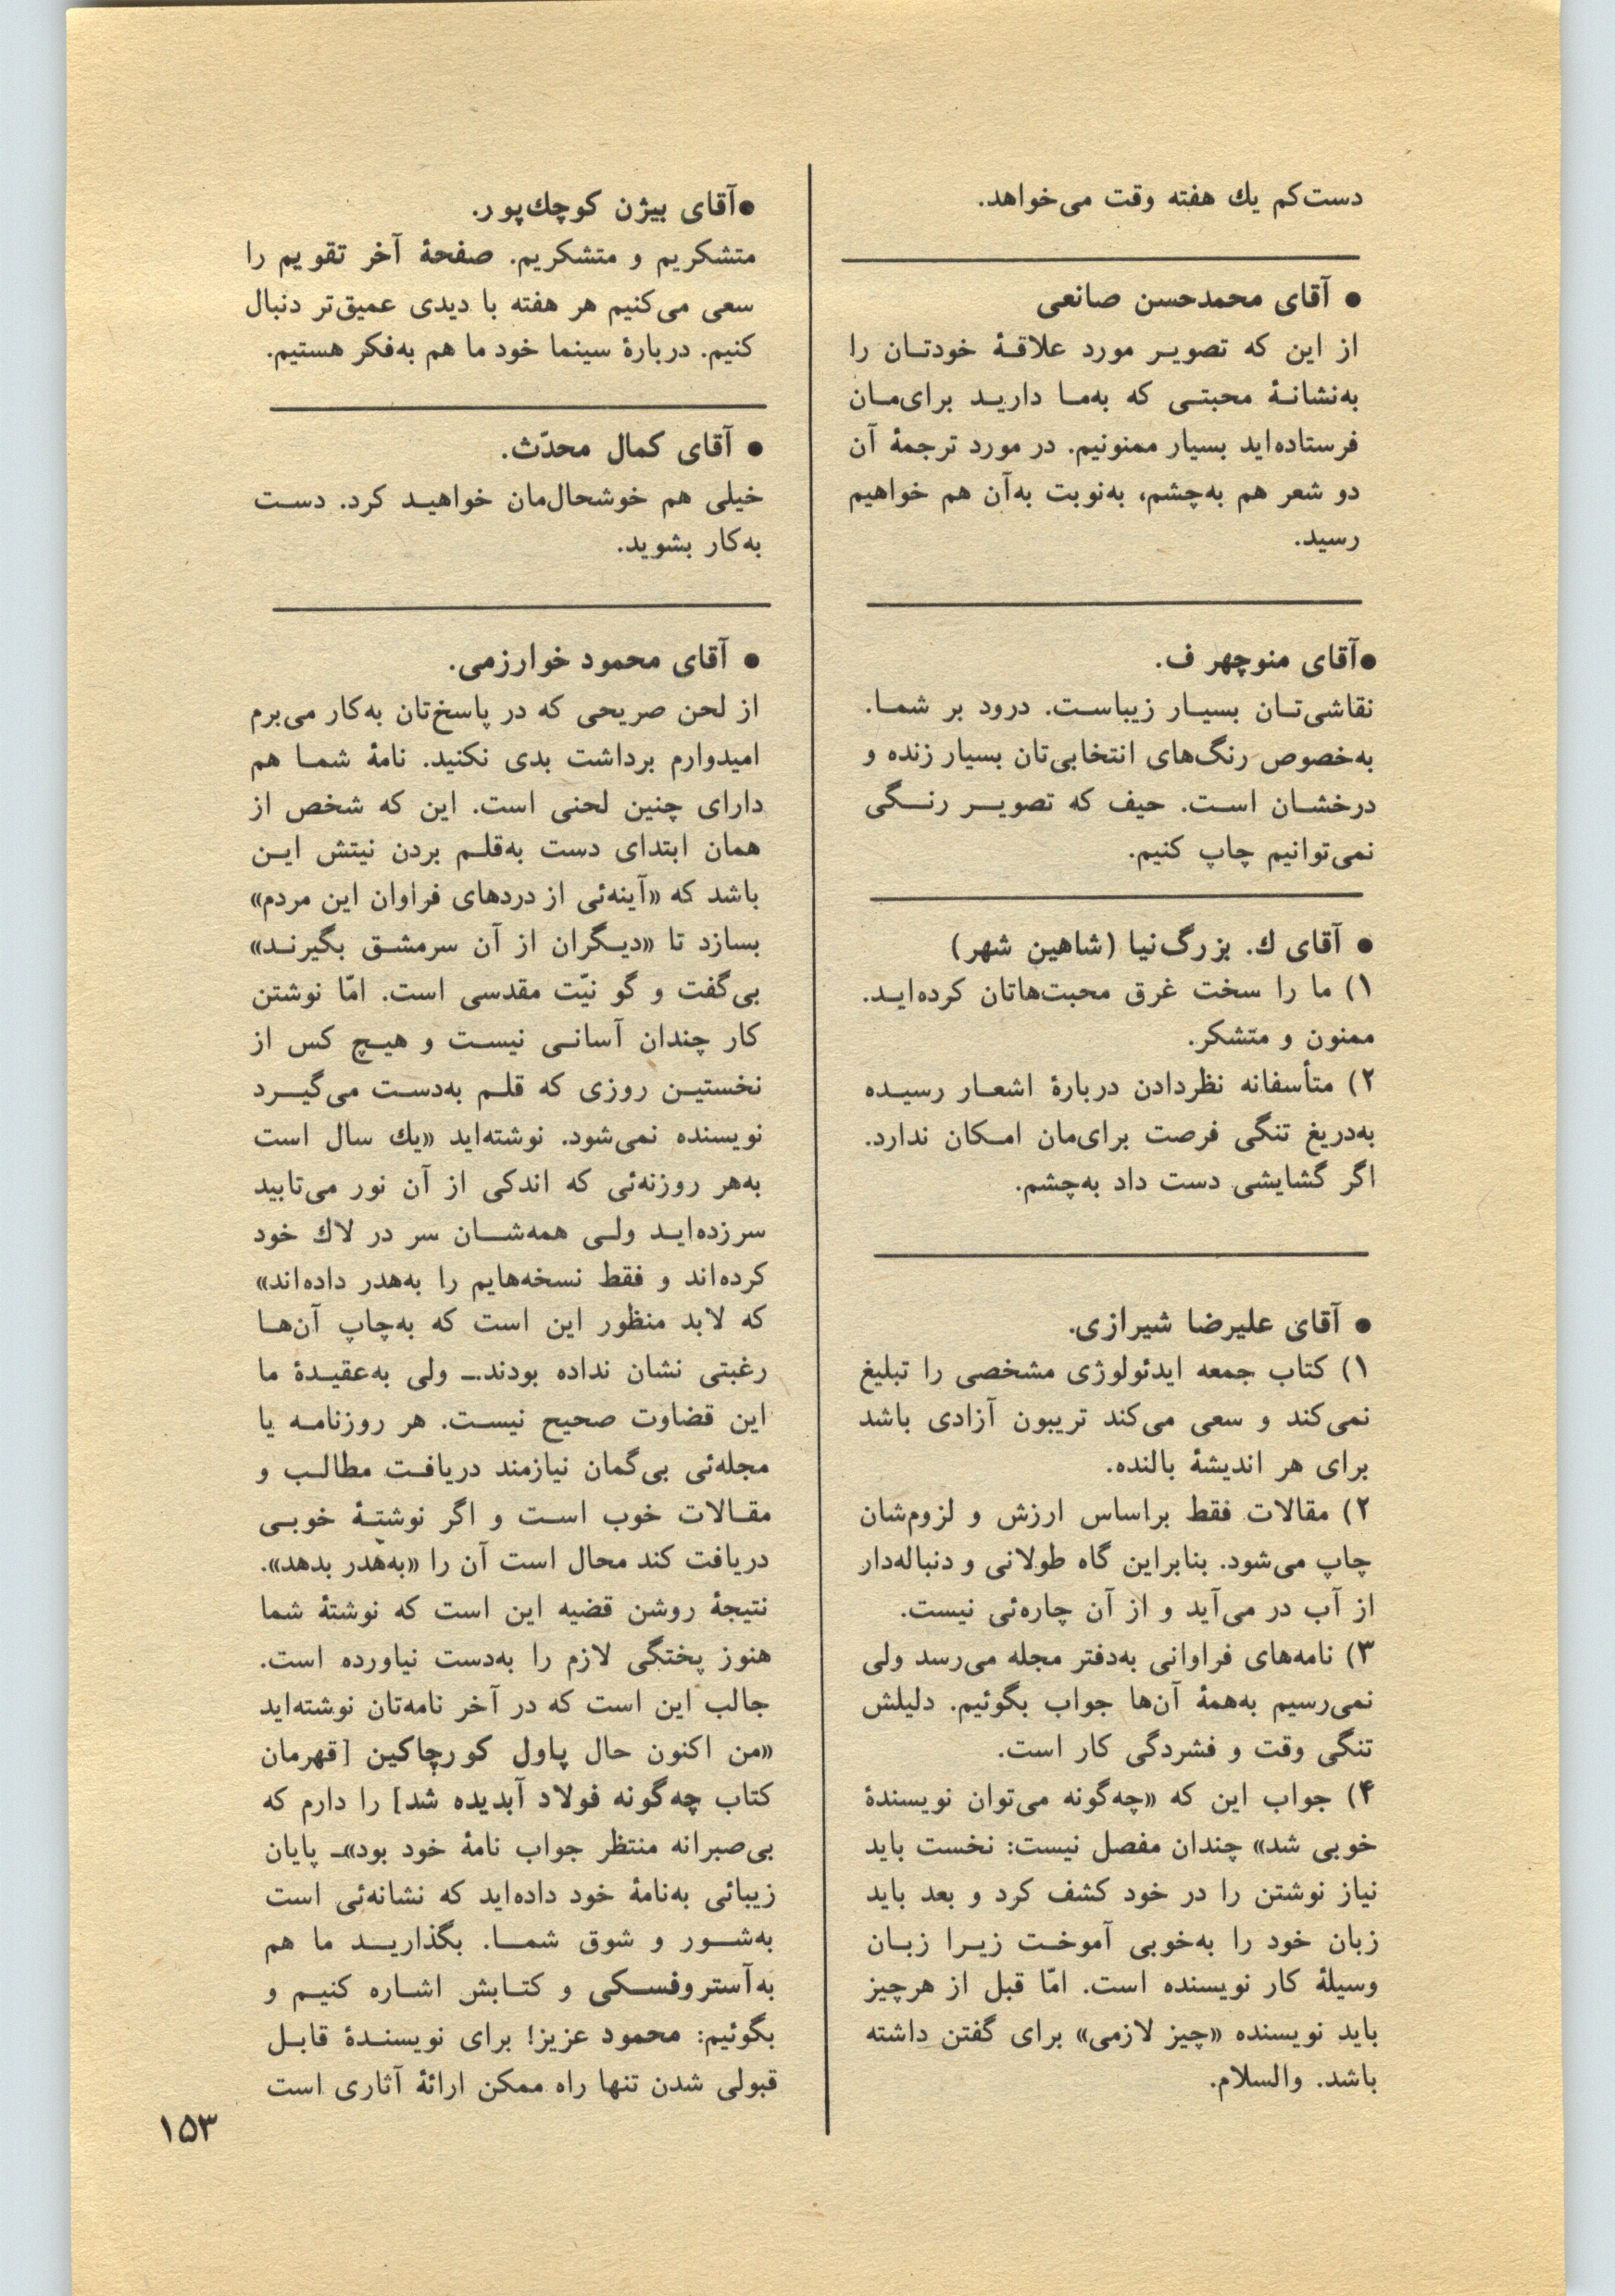 دست‌کم یك هفته وقت می‌خواهد.
● آقای محمدحسن صانعی
از این که تصویر مورد علاقهٔ خودتان را
به‌نشانهٔ محبتی که به‌ما دارید برای‌مان
فرستاده‌اید بسیار ممنونیم. در مورد ترجمهٔ آن
دو شعر هم به‌چشم، به‌نوبت به‌آن هم خواهیم
رسید.
●آقای منوچهر ف.
نقاشی‌تان بسیار زیباست. درود بر شما.
به‌خصوص رنگ‌های انتخابی‌تان بسیار زنده و
درخشان است. حیف که تصویر رنگی
نمی‌توانیم چاپ کنیم.
● آقای ك. بزرگ‌نیا (شاهین شهر)
۱) ما را سخت غرق محبت‌هاتان کرده‌اید.
ممنون و متشکر.
۲) متأسفانه نظردادن دربارهٔ اشعار رسیده
به‌دریغ تنگی فرصت برای‌مان امکان ندارد.
اگر گشایشی دست داد به‌چشم.
● آقای علیرضا شیرازی.
۱) کتاب جمعه ایدئولوژی مشخصی را تبلیغ
نمی‌کند و سعی می‌کند تریبون آزادی باشد
برای هر اندیشهٔ بالنده.
۲) مقالات فقط براساس ارزش و لزوم‌شان
چاپ می‌شود. بنابراین گاه طولانی و دنباله‌دار
از آب در می‌آید و از آن چاره‌ئی نیست.
۳) نامه‌های فراوانی به‌دفتر مجله می‌رسد ولی
نمی‌رسیم به‌همهٔ آن‌ها جواب بگوئیم. دلیلش
تنگی وقت و فشردگی کار است.
۴) جواب این که «چه‌گونه می‌توان نویسندهٔ
خوبی شد» چندان مفصل نیست: نخست باید
نیاز نوشتن را در خود کشف کرد و بعد باید
زبان خود را به‌خوبی آموخت زیرا زبان
وسیلهٔ کار نویسنده است. امّا قبل از هرچیز
باید نویسنده «چیز لازمی» برای گفتن داشته
باشد. والسلام.
●آقای بیژن کوچك‌پور.
متشکریم و متشکریم. صفحهٔ آخر تقویم را
سعی می‌کنیم هر هفته با دیدی عمیق‌تر دنبال
کنیم. دربارهٔ سینما خود ما هم به‌فکر هستیم.
● آقای کمال محدّث.
خیلی هم خوشحال‌مان خواهید کرد. دست
به‌کار بشوید.
● آقای محمود خوارزمی.
از لحن صریحی که در پاسخ‌تان به‌کار می‌برم
امیدوارم برداشت بدی نکنید. نامهٔ شما هم
دارای چنین لحنی است. این که شخص از
همان ابتدای دست به‌قلم بردن نیتش این
باشد که «آینه‌ئی از دردهای فراوان این مردم»
بسازد تا «دیگران از آن سرمشق بگیرند»
بی‌گفت و گو نیّت مقدسی است. امّا نوشتن
کار چندان آسانی نیست و هیچ کس از
نخستین روزی که قلم به‌دست می‌گیرد
نویسنده نمی‌شود. نوشته‌اید «یك سال است
به‌هر روزنه‌ئی که اندکی از آن نور می‌تابید
سرزده‌اید ولی همه‌شان سر در لاك خود
کرده‌اند و فقط نسخه‌هایم را به‌هدر داده‌اند»
که لابد منظور این است که به‌چاپ آن‌ها
رغبتی نشان نداده بودند.ـ ولی به‌عقیدهٔ ما
این قضاوت صحیح نیست. هر روزنامه یا
مجله‌ئی بی‌گمان نیازمند دریافت مطالب و
مقالات خوب است و اگر نوشتهٔ خوبی
دریافت کند محال است آن را «به‌هدر بدهد».
نتیجهٔ روشن قضیه این است که نوشتهٔ شما
هنوز پختگی لازم را به‌دست نیاورده است.
جالب این است که در آخر نامه‌تان نوشته‌اید
«من اکنون حال پاول کورچاکین [قهرمان
کتاب چه‌گونه فولاد آبدیده شد] را دارم که
بی‌صبرانه منتظر جواب نامهٔ خود بود»ـ پایان
زیبائی به‌نامهٔ خود داده‌اید که نشانه‌ئی است
به‌شور و شوق شما. بگذارید ما هم
به‌آستروفسکی و کتابش اشاره کنیم و
بگوئیم: محمود عزیز! برای نویسندهٔ قابل
قبولی شدن تنها راه ممکن ارائهٔ آثاری است
۱۵۳